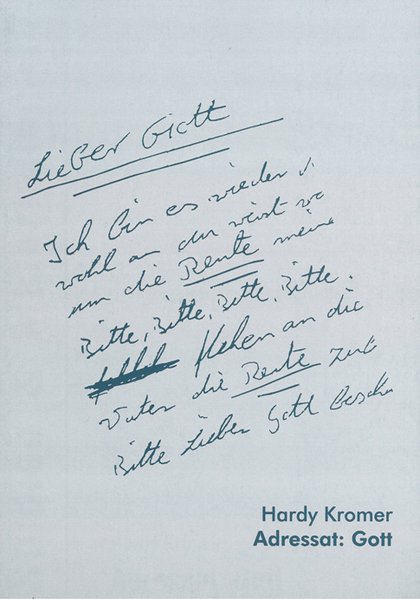 Lieber Gott
Ich bin es wieder
wohl an du weist
um die Rente meine
Bitte, Bitte, Bitte, Bitte.
flehen an die
Vater die Rente
Bitte Lieber Gott
Hardy Kromer
Adressat: Gott